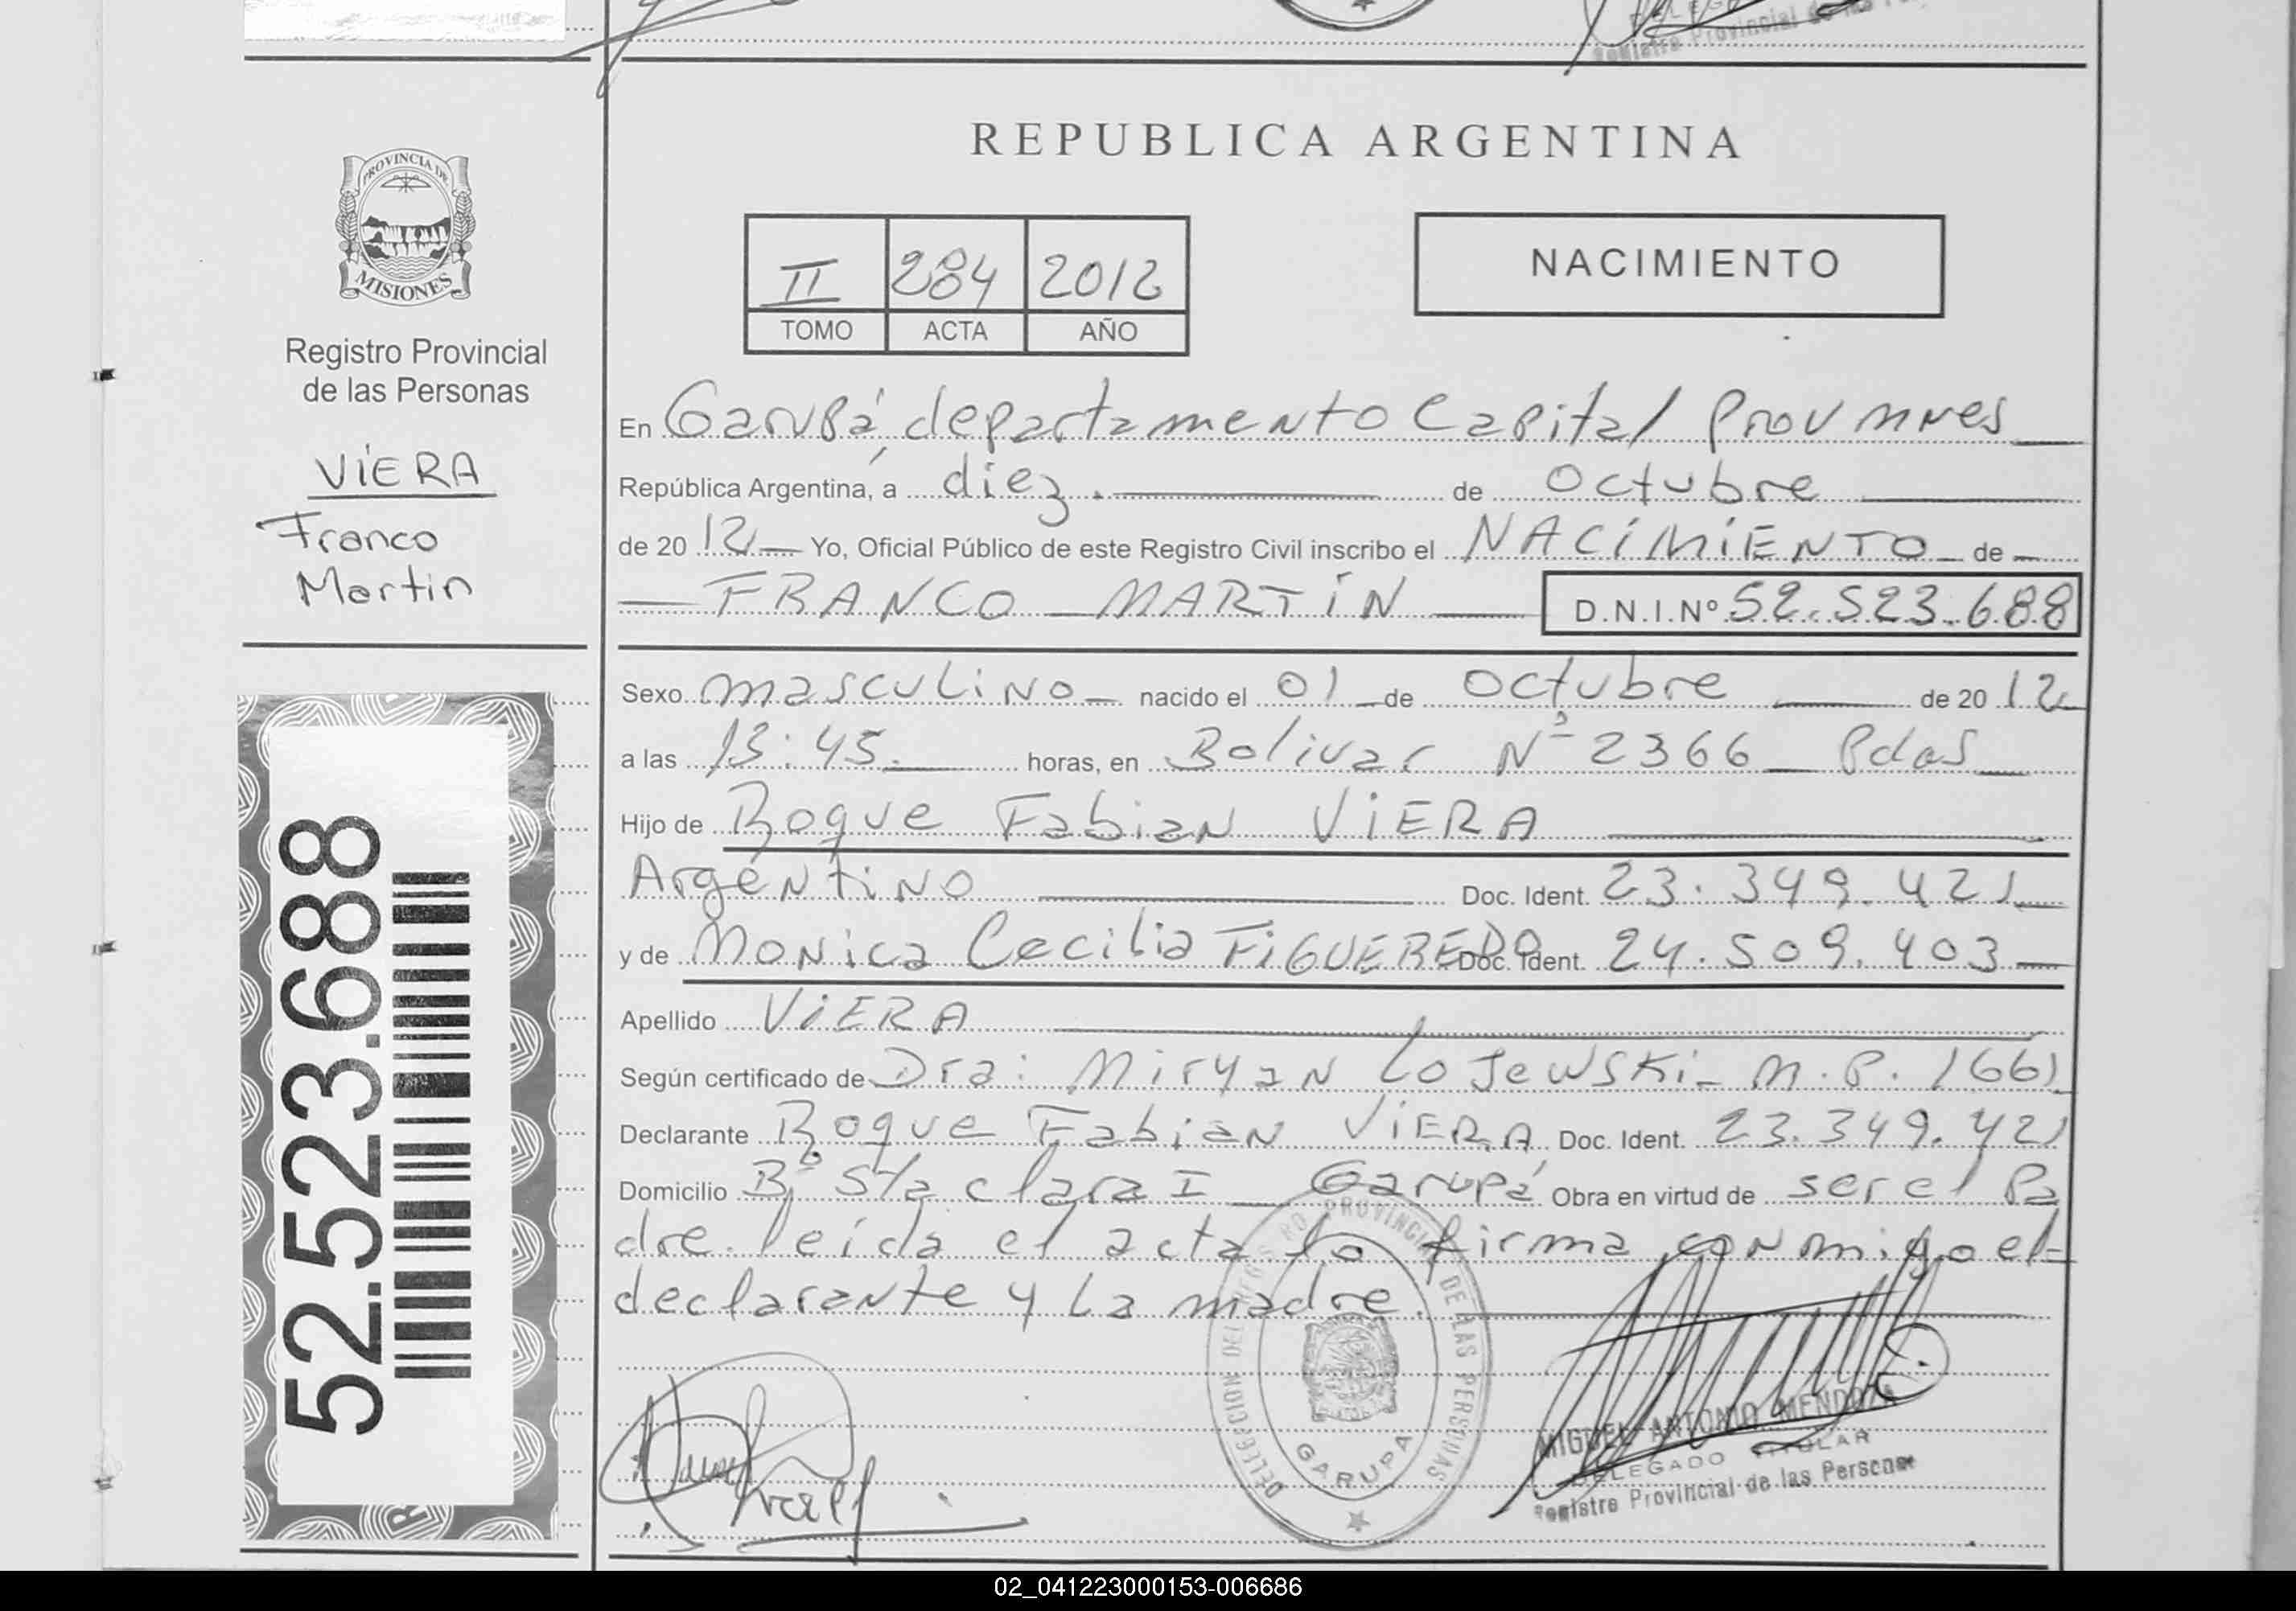 Registro Provincial de las Pe
REPUBLICA ARGENTINA
PROVINCIA DE
MISIONES
Registro Provincial
de las Personas
VIERA
Franco
Martin
52.523.688
II 284 2012
TOMO ACTA AÑO
NACIMIENTO
En Garupá, departamento Capital Prov mnes
República Argentina, a diez. de octubre
de 20 12 Yo, Oficial Público de este Registro Civil inscribo el NACIMIENTO de
FRANCO MARTÍN D.N.I.Nº 52.523.688
Sexo masculino nacido el 01 de octubre de 20 12
a las 13:45. horas, en Bolivar Nº 2366 Pdas
Hijo de Roque Fabian VIERA
Argentino Doc. Ident. 23.349.421
y de Monica Cecilia FIGUEREDO Doc. Ident. 24.509.403
Apellido VIERA
Según certificado de Dra: Miryan Lojewski - M.P. 1661
Declarante Roque Fabian VIERA Doc. Ident. 23.349.421
Domicilio Bº Sta clara I Garupá Obra en virtud de ser el Pa
dre. leída el acta la firma conmigo el-
declarante y La madre.
DELEGACION DEL REGISTRO PROVINCIAL DE LAS PERSONAS
GARUPA
MIGUEL ANTONIO MENDOZA
DELEGADO TITULAR
Registro Provincial de las Personas
02_041223000153-006686